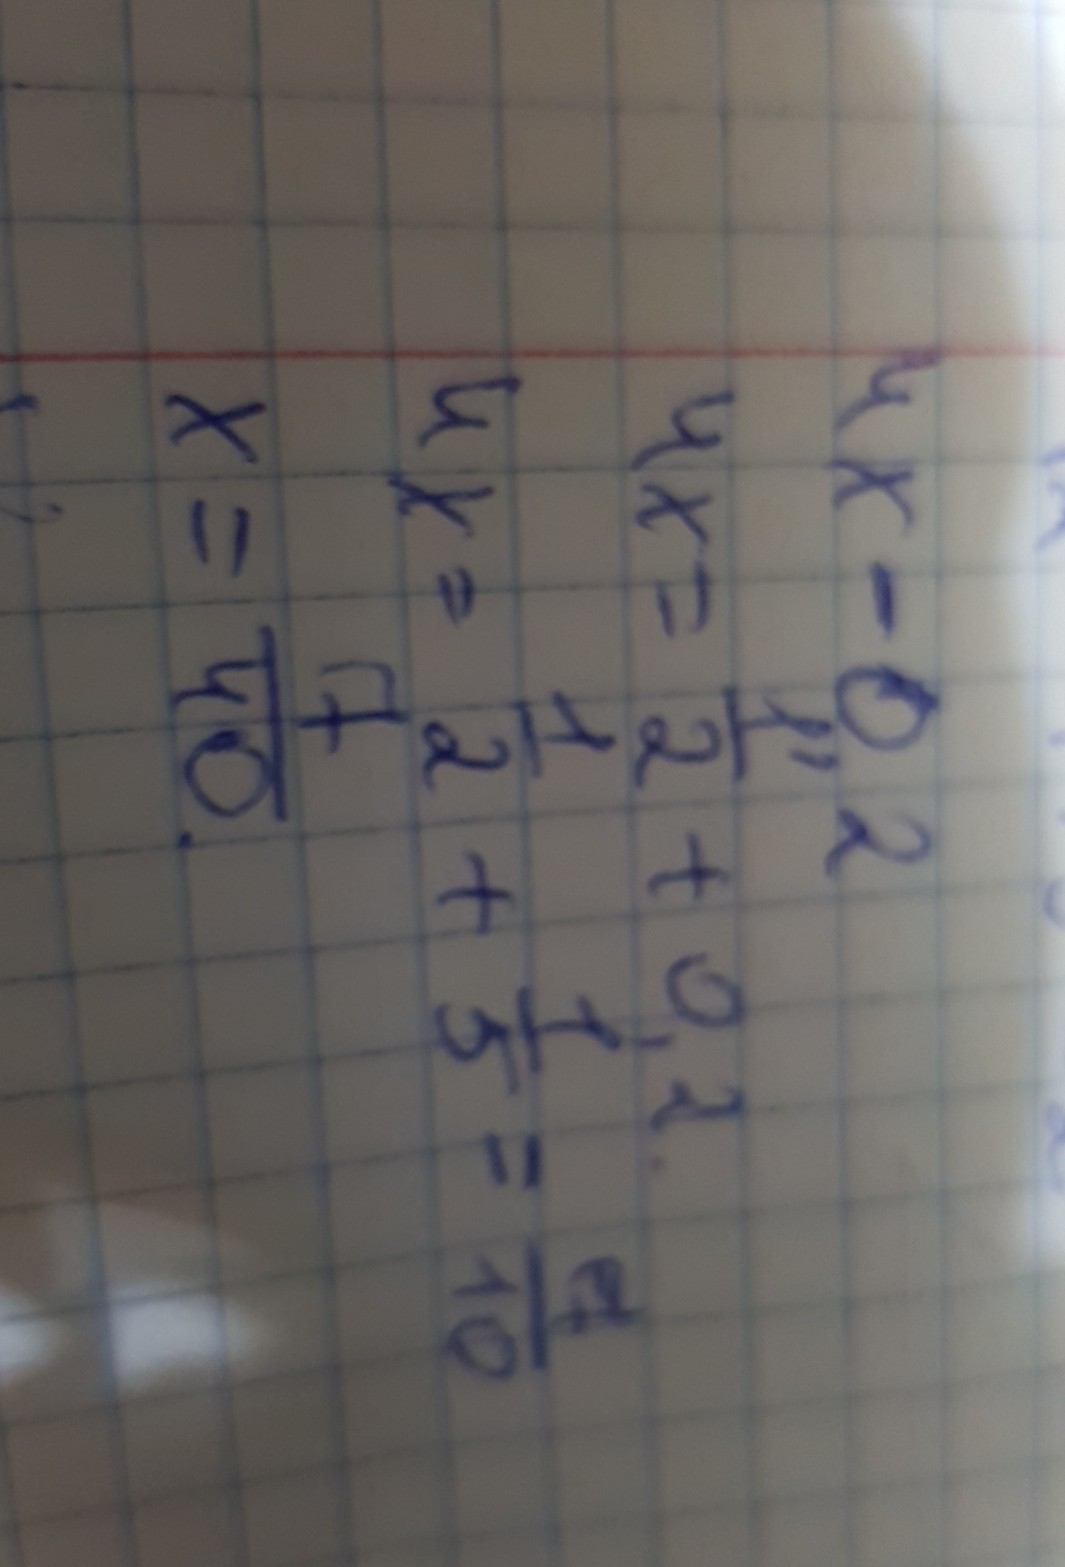 4x - 0,2
4x = 1/2 + 0,2.
4x = 1/2 + 1/5 = 7/10
x = 7/40.